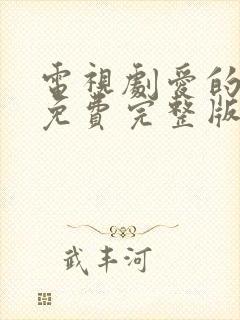 電視劇愛的
免費完整版
武丰河